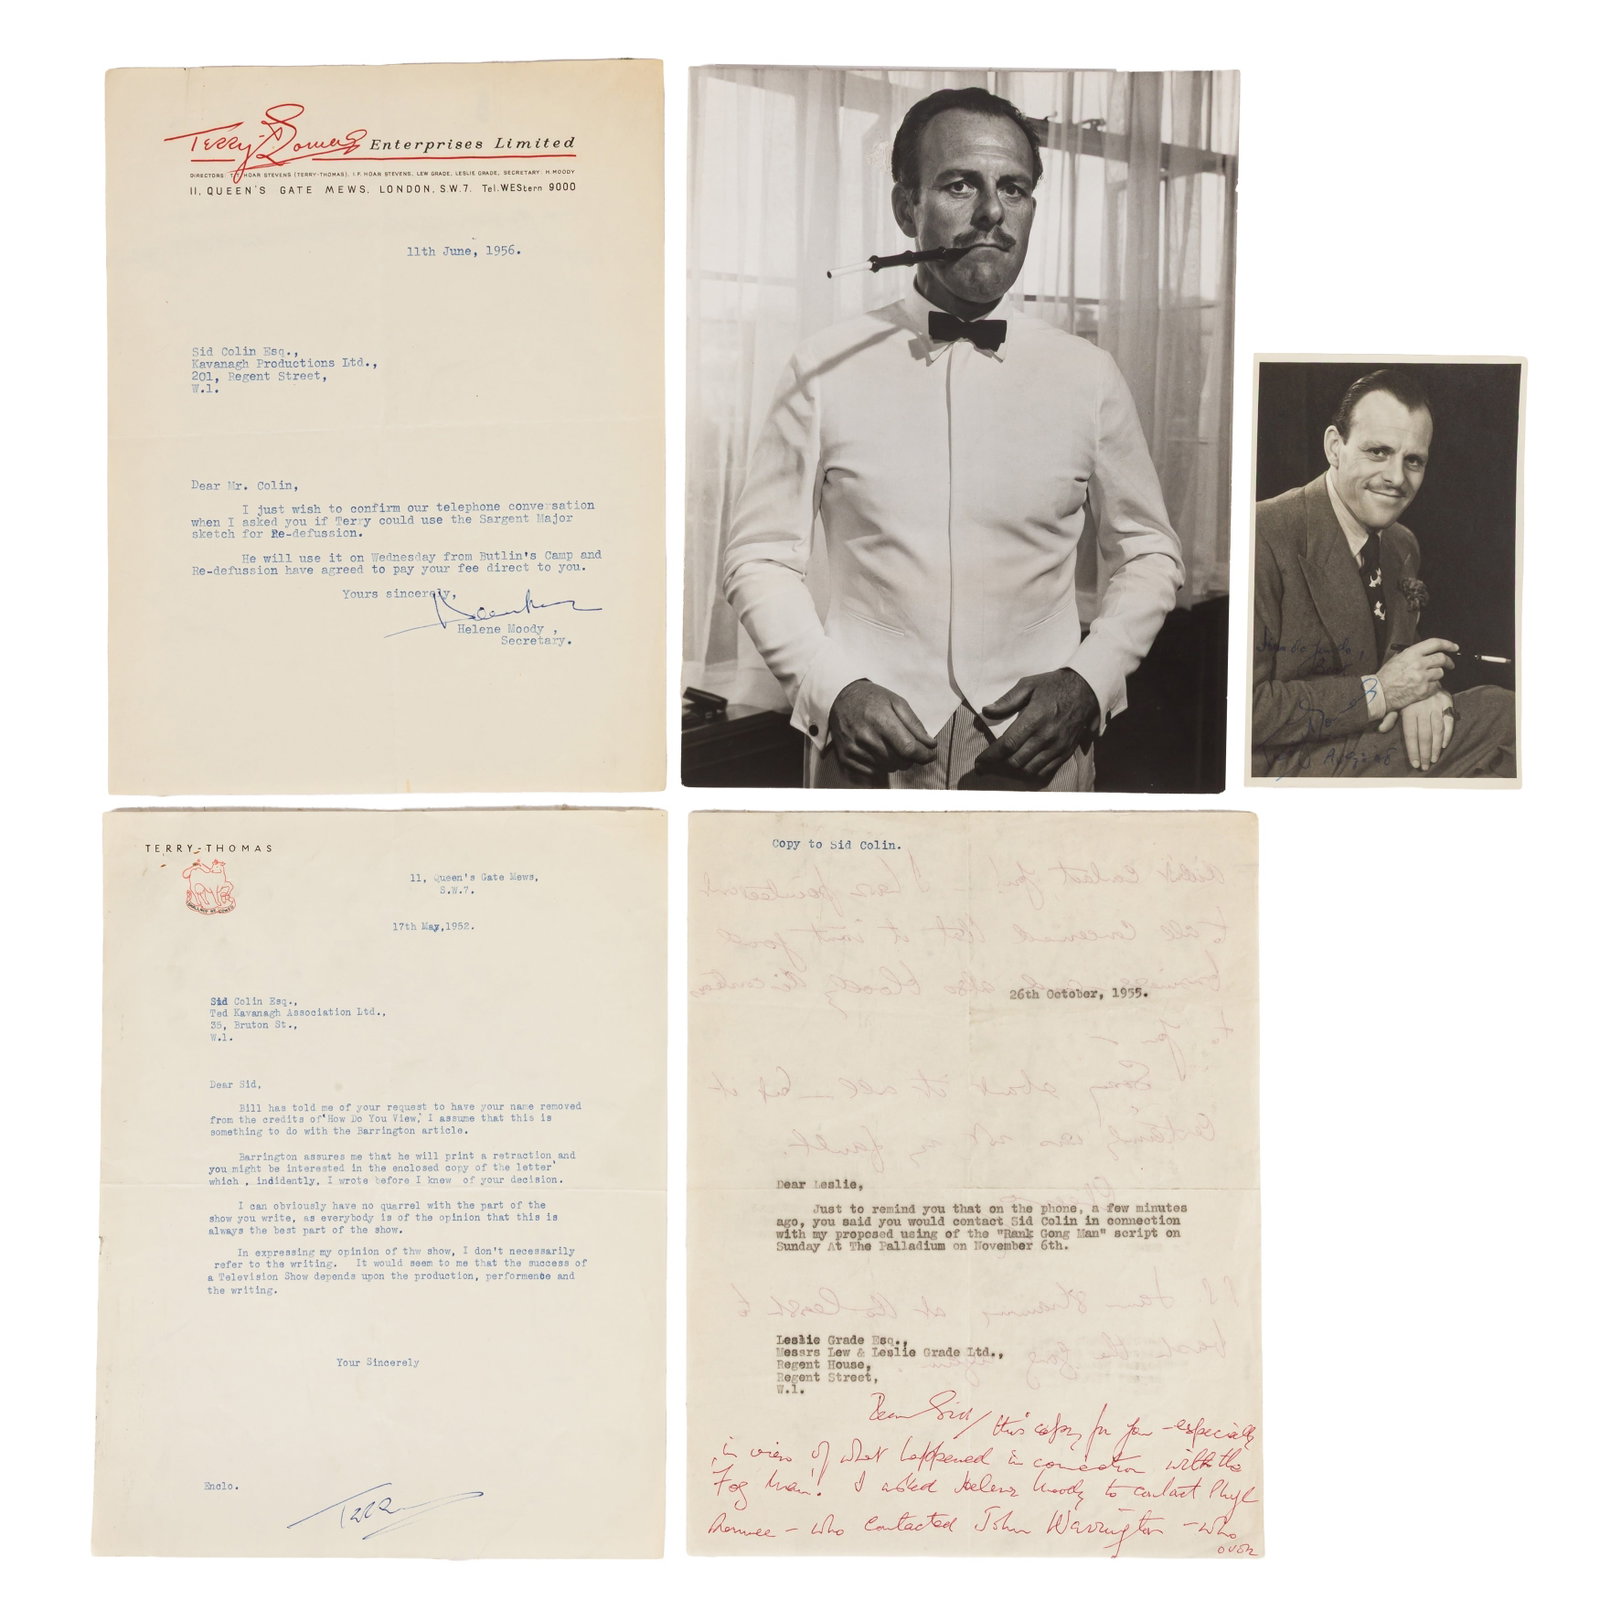 Terry-Thomas Enterprises Limited
DIRECTORS: T.T. HOAR STEVENS (TERRY-THOMAS), I.F. HOAR STEVENS, LEW GRADE, LESLIE GRADE, SECRETARY: H. MOODY
11, QUEEN'S GATE MEWS, LONDON, S.W.7. Tel. WEStern 9000
11th June, 1956.
Sid Colin Esq.,
Kavanagh Productions Ltd.,
201, Regent Street,
W.1.
Dear Mr. Colin,
I just wish to confirm our telephone conversation
when I asked you if Terry could use the Sargent Major
sketch for Re-defussion.
He will use it on Wednesday from Butlin's Camp and
Re-defussion have agreed to pay your fee direct to you.
Yours sincerely,
Helene Moody ,
Secretary.
TERRY-THOMAS
11, Queen's Gate Mews,
S.W.7.
17th May,1952.
Sid Colin Esq.,
Ted Kavanagh Association Ltd.,
35, Bruton St.,
W.1.
Dear Sid,
Bill has told me of your request to have your name removed
from the credits of'How Do You View,' I assume that this is
something to do with the Barrington article.
Barrington assures me that he will print a retraction and
you might be interested in the enclosed copy of the letter
which , indidently, I wrote before I knew of your decision.
I can obviously have no quarrel with the part of the
show you write, as everybody is of the opinion that this is
always the best part of the show.
In expressing my opinion of thw show, I don't necessarily
refer to the writing. It would seem to me that the success of
a Television Show depends upon the production, performence and
the writing.
Your Sincerely
Enclo.
Terry
Copy to Sid Colin.
26th October, 1955.
Dear Leslie,
Just to remind you that on the phone, a few minutes
ago, you said you would contact Sid Colin in connection
with my proposed using of the "Rank Gong Man" script on
Sunday At The Palladium on November 6th.
Leslie Grade Esq.,
Messrs Lew & Leslie Grade Ltd.,
Regent House,
Regent Street,
W.1.
Dear Sid/ this copy for you - especially
in view of what happened in connection with the
Fog Man! I asked Helene Moody to contact Phyl
- who contacted John Warrington - who
OVER